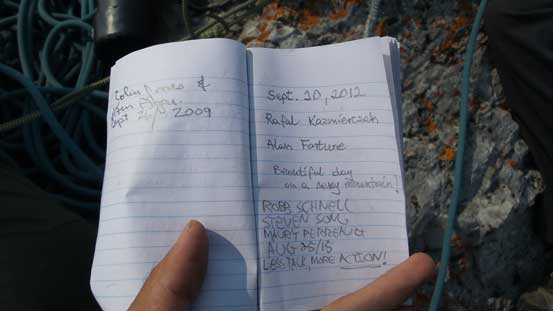 Colin &
Sept 2009
Sept. 20, 2012
Rafal Kazmierczak
Alan Fortune
Beautiful day
on a sexy mountain!
ROBB SCHNELL
STEVEN SONG
MAURY PERRENCT
AUG 25/15
LESS TALK, MORE ACTION!